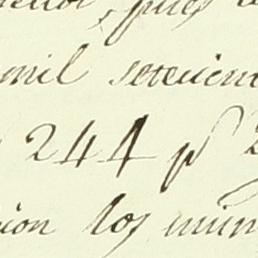 pues
mil setecien
244 p^s 2
ion los mun